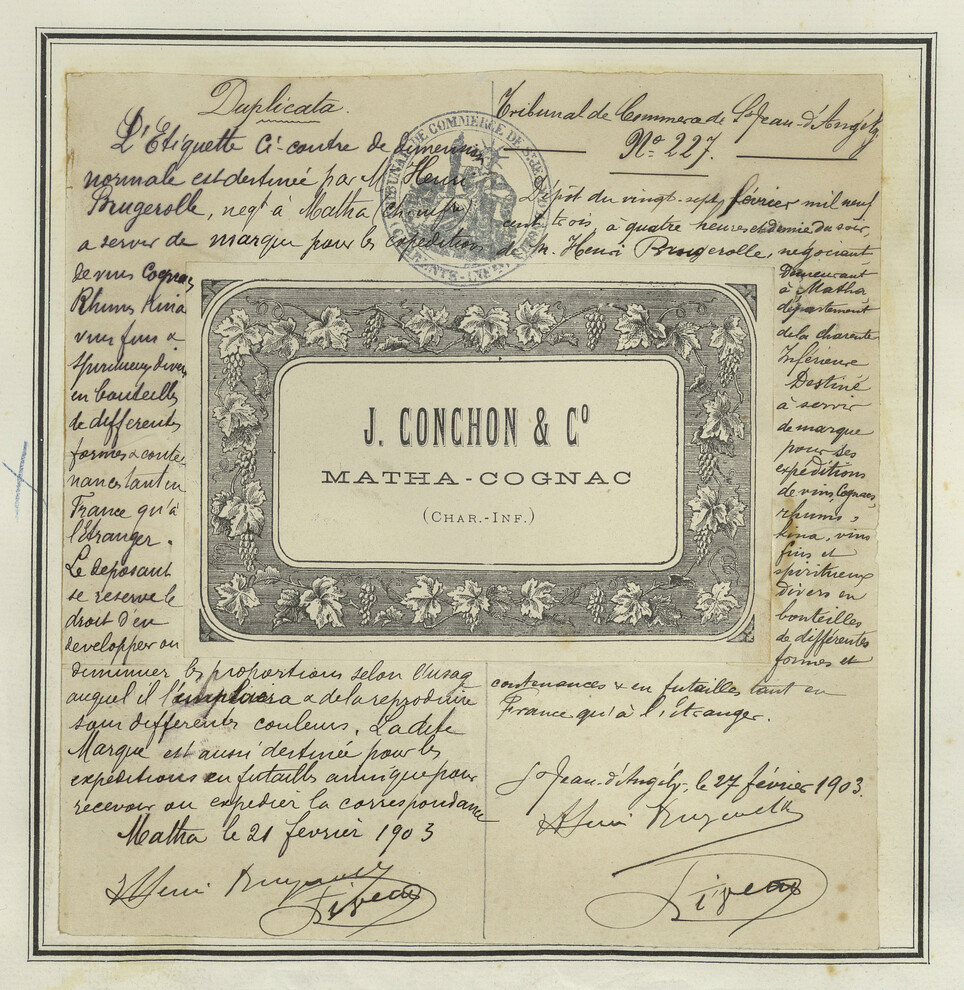 Duplicata.
L'Etiquette Ci-contre de dimension
normale est destinée par M. Henri
Brugerolle, negt à Matha
a servir de marque pour les expéditions
de vins Cognacs
Rhums Kina
vins fins &
spiritueux divers
en bouteilles
de differentes
formes & conte-
nances tant en
France qu'à
l'Etranger.
Le deposant
se réserve le
droit d'en
developper ou
diminuer les proportions selon l'usage
auquel il l'emploiera & de la reproduire
sous differentes couleurs. La dite
Marque est aussi destinée pour les
expéditions en futailles ainsi que pour
recevoir ou expedier la correspondance
Matha le 21 fevrier 1903
Henri Brugerolle
Tribunal de Commerce de St Jean-d'Angély
No 227.
Dépôt du vingt-sept février mil neuf
cent trois à quatre heures et demie du soir,
de M. Henri Brugerolle, négociant
Demeurant
à Matha
département
de la charente
Inférieure
Destiné
à servir
de marque
pour ses
expéditions
de vins, Cognacs,
rhums,
kina, vins
fins et
spiritueux
divers en
bouteilles
de différentes
formes et
contenances & en futailles tant en
France qu'à l'étranger.
St Jean-d'Angély, le 27 février 1903.
Henri Brugerolle
TRIBUNAL DE COMMERCE DE ST JEAN
J. CONCHON & Co
MATHA-COGNAC
(CHAR.-INF.)